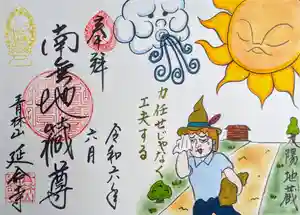 奉拝
南無地蔵尊
青林山 延命寺
令和六年
六月
力任せじゃなく
工夫する
太陽地蔵